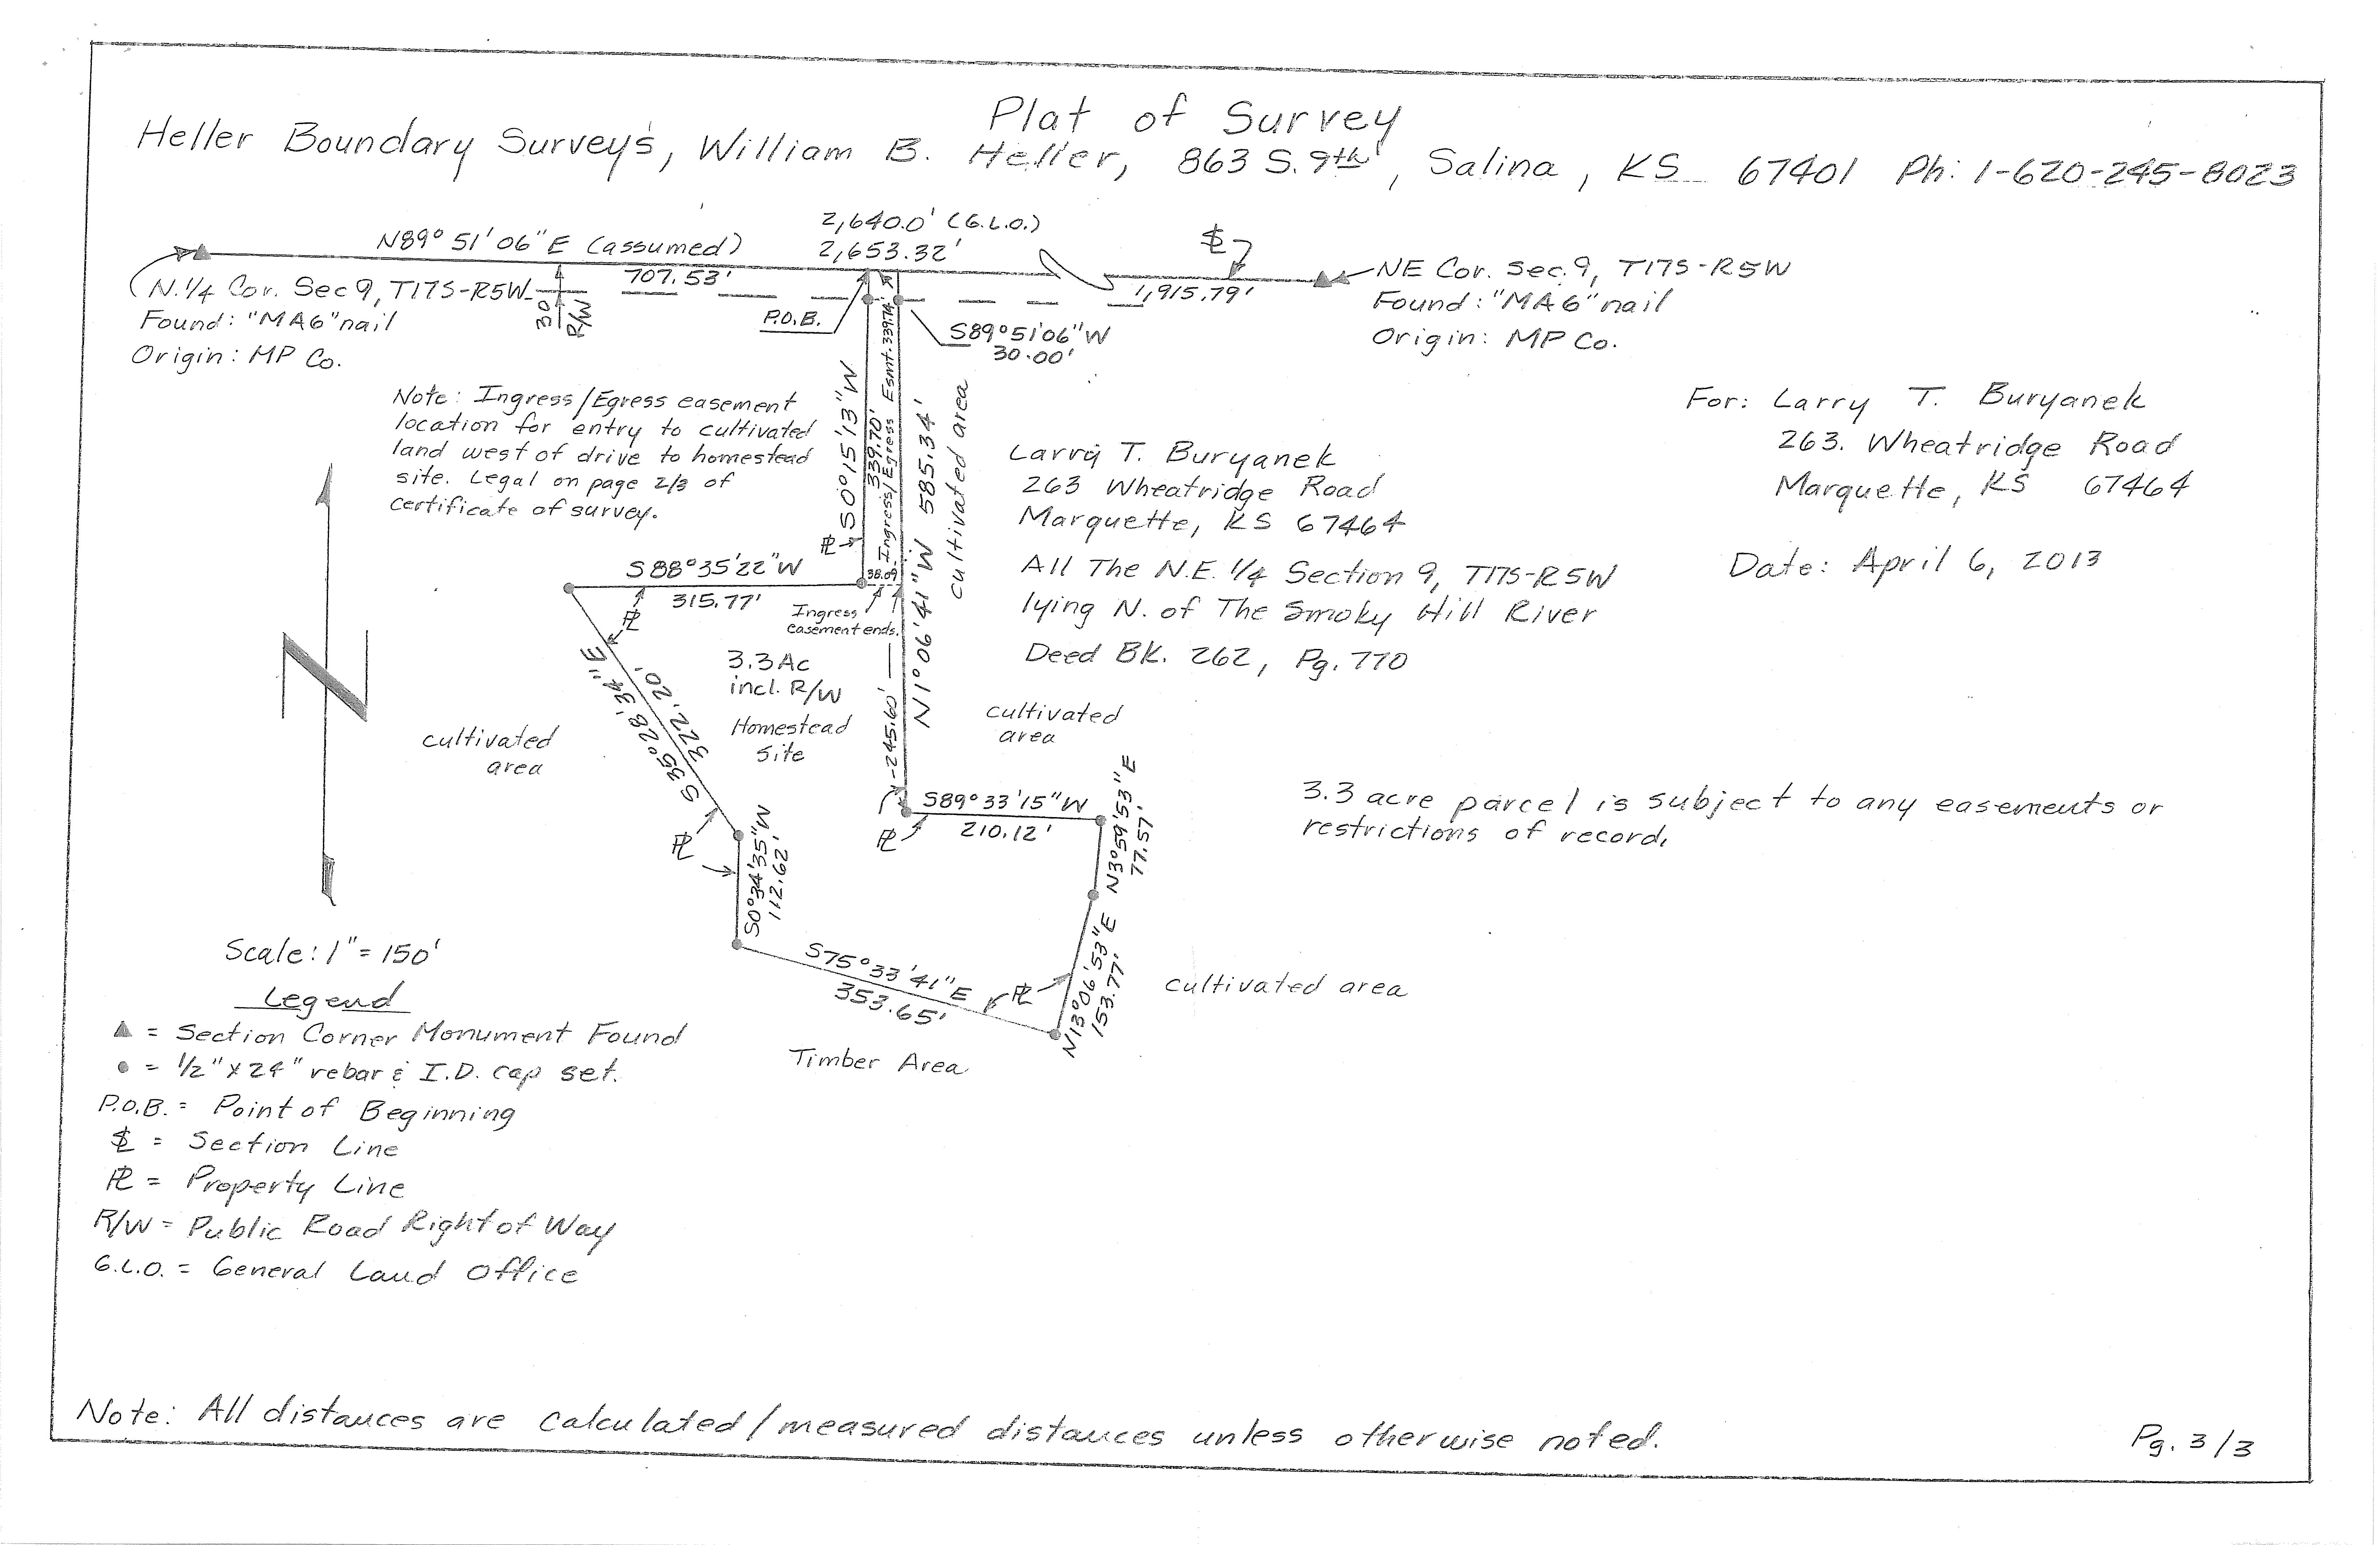 Plat of Survey
Heller Boundary Survey's, William B. Heller, 863 S. 9th, Salina, KS 67401 Ph: 1-620-245-8023
2,640.0' (G.L.O.)
N89° 51' 06" E (assumed)
2,653.32'
707.53'
1,915.79'
N.1/4 Cor. Sec 9, T17S-R5W
Found: "MAG" nail
Origin: MP Co.
30'
R/W
P.O.B.
S89°51'06"W
30.00'
NE Cor. Sec. 9, T17S-R5W
Found: "MAG" nail
Origin: MP Co.
Note: Ingress/Egress easement
location for entry to cultivated
land west of drive to homestead
site. Legal on page 2/3 of
certificate of survey.
S0°15'13"W
339.70'
Ingress/Egress Esmt. 339.74
N1°06'41"W 585.34'
cultivated area
Larry T. Buryanek
263 Wheatridge Road
Marquette, KS 67464
All The N.E. 1/4 Section 9, T17S-R5W
lying N. of The Smoky Hill River
Deed Bk. 262, Pg. 770
For: Larry T. Buryanek
263. Wheatridge Road
Marquette, KS 67464
Date: April 6, 2013
S88°35'22"W
315.77'
38.09
Ingress
easement ends.
3.3 Ac
incl. R/W
Homestead
Site
S35°28'34"E
322.20'
cultivated
area
245.60'
cultivated
area
S89°33'15"W
210.12'
N3°59'53"E
77.57'
S0°34'35"W
112.62'
S75°33'41"E
353.65'
N13°06'53"E
153.77'
cultivated area
Timber Area
3.3 acre parcel is subject to any easements or
restrictions of record.
N
Scale: 1" = 150'
Legend
▲ = Section Corner Monument Found
● = 1/2" x 24" rebar & I.D. cap set.
P.O.B. = Point of Beginning
SL = Section Line
PL = Property Line
R/W = Public Road Right of Way
G.L.O. = General Land Office
Note: All distances are calculated/measured distances unless otherwise noted.
Pg. 3/3